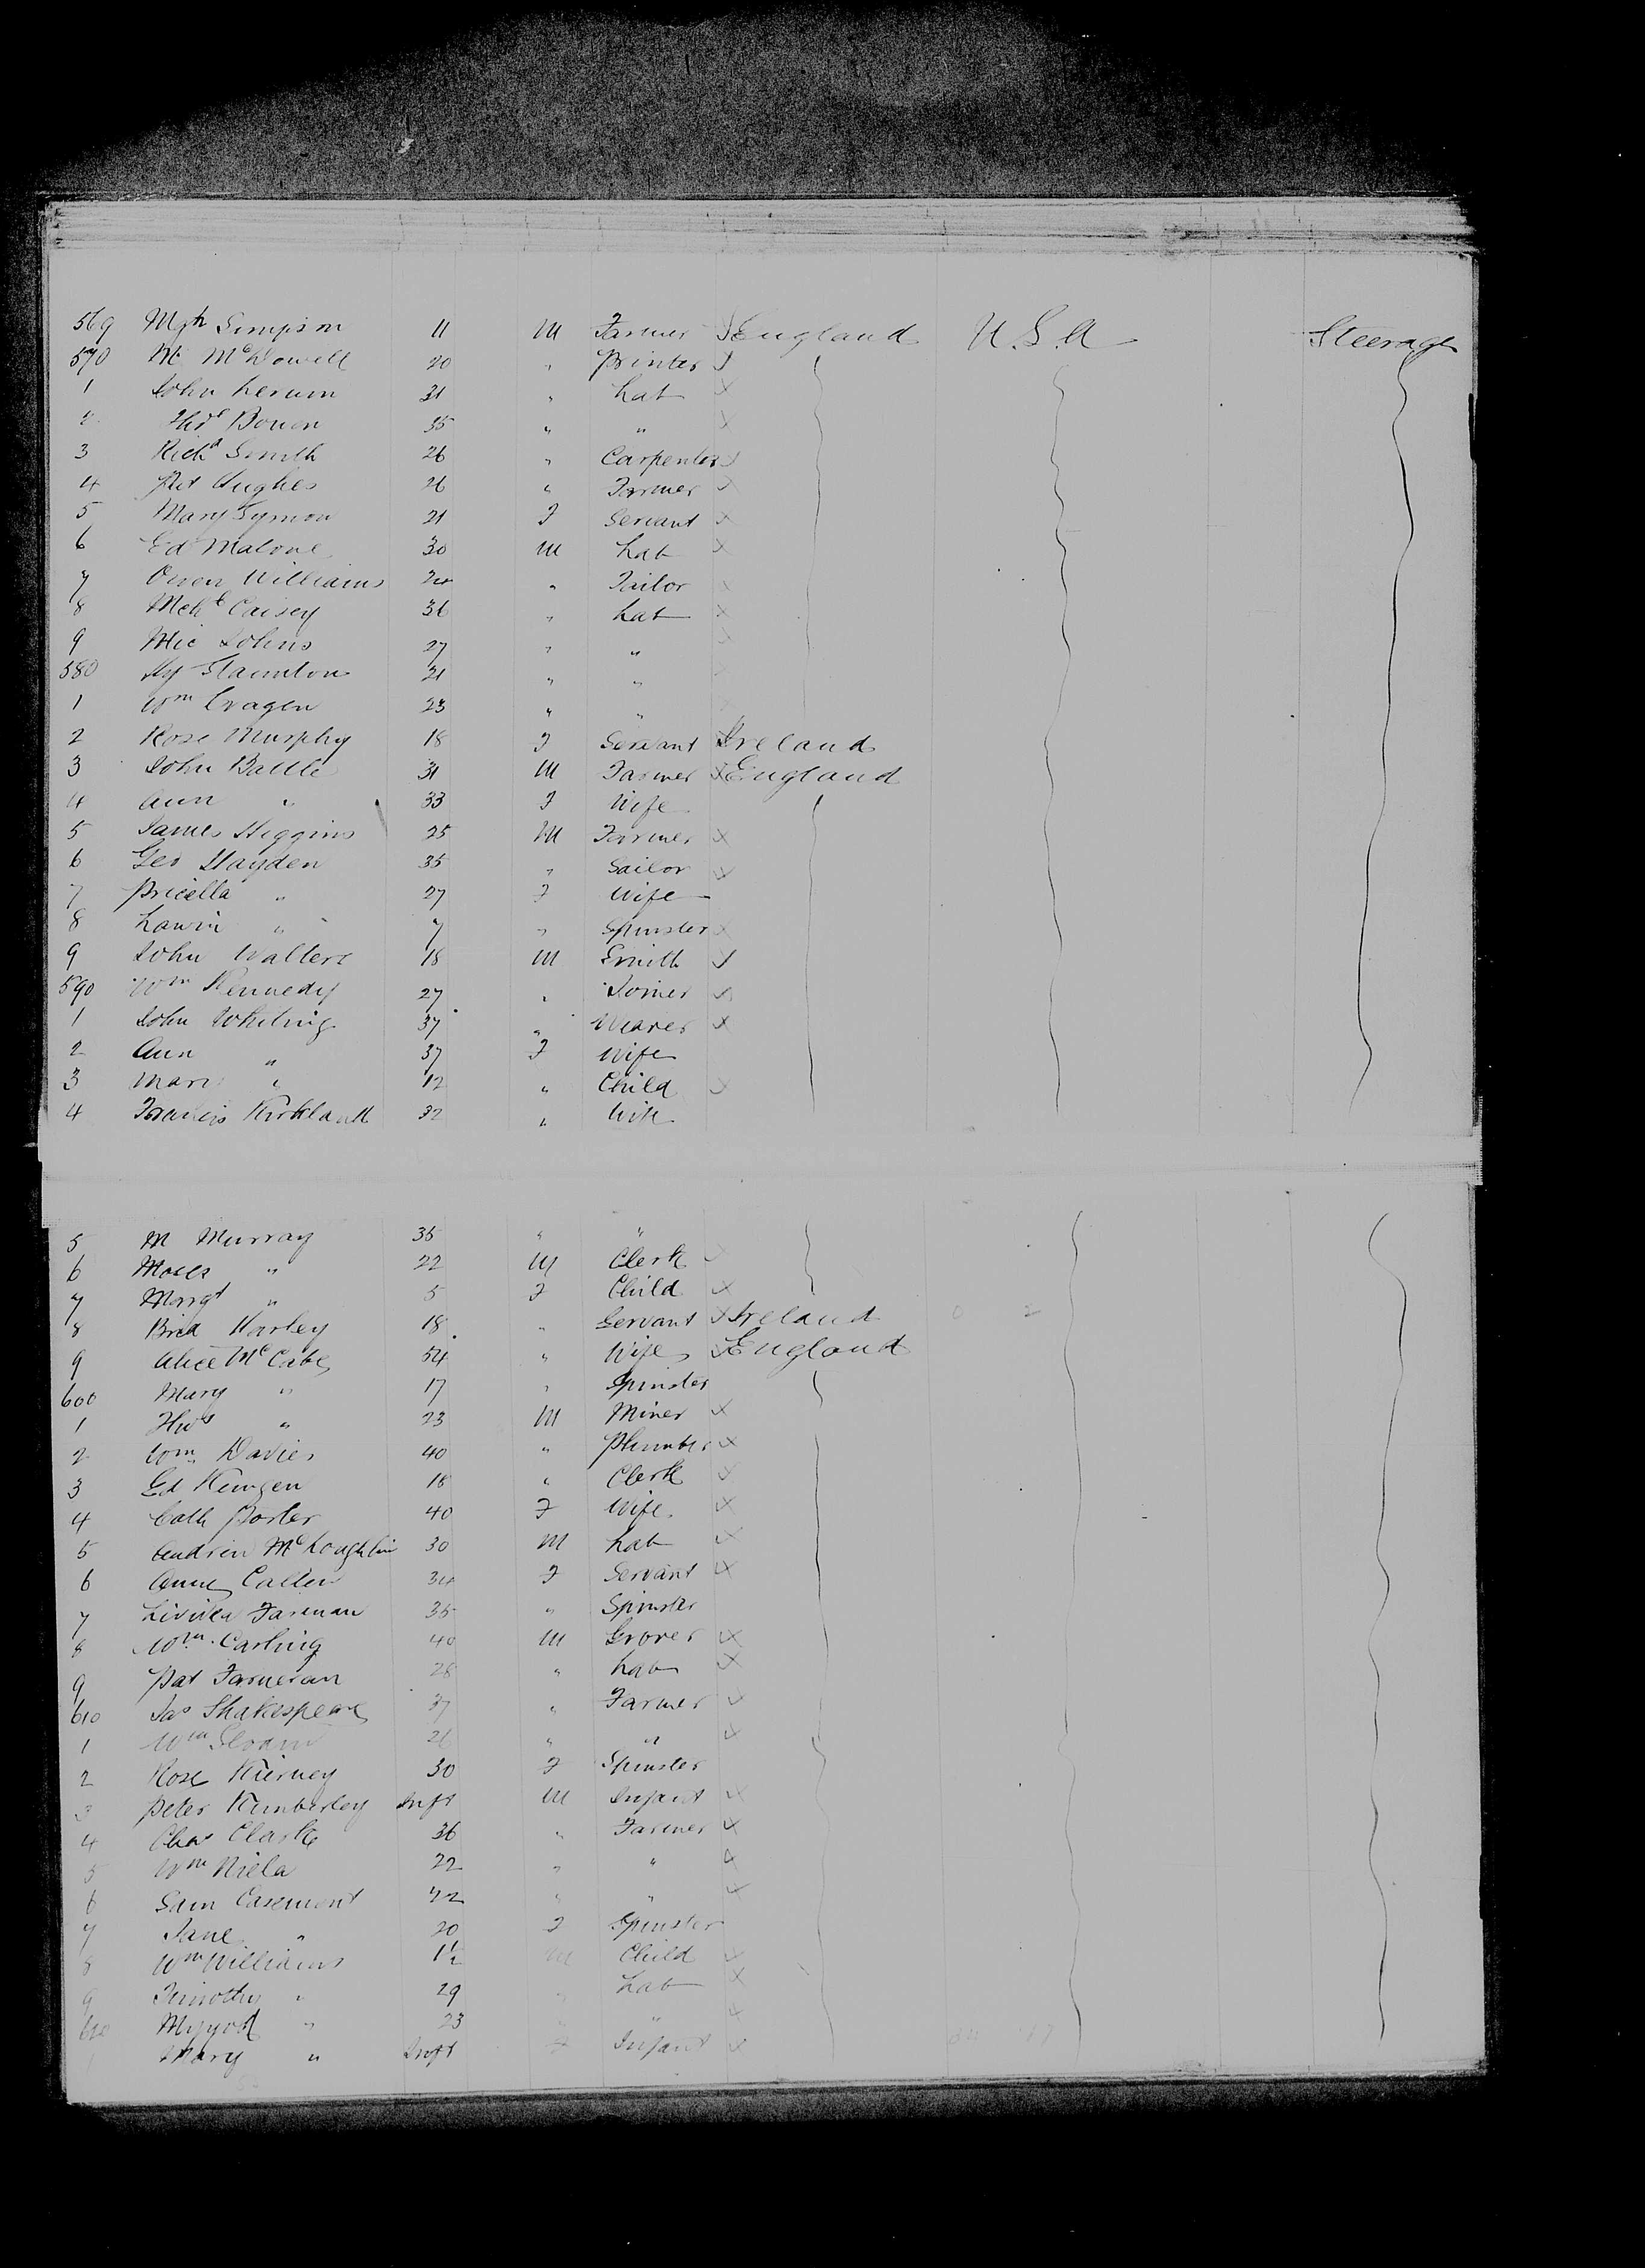 569 Mgh Simpson 11 M Farmer England U.S.A Steerage
570 M McDowell 20 " Printer
1 John 31 " Lab
2 Thos Bowen 35 " "
3 Richd Smith 26 " Carpenter
4 Pat Hughes 26 " Farmer
5 Mary Symon 21 F Servant
6 Ed Malone 30 M Lab
7 Owen Williams 24 " Tailor
8 Mchl Caisey 36 " Lab
9 Mic Johns 27 " "
580 Hy Staunton 21 " "
1 Wm Cragen 23 " "
2 Rose Murphy 18 F Servant Ireland
3 John Battle 31 M Farmer England
4 Ann " 33 F Wife
5 James Higgins 25 M Farmer
6 Geo Hayden 35 " Sailor
7 Pricella " 27 F Wife
8 " 7 " Spinster
9 John Walters 18 M Smith
590 Wm Kennedy 27 " Joiner
1 John Whiting 37 " Weaver
2 Ann " 37 F Wife
3 Mary " 12 " Child
4 Francis Kirkland 32 " Wife
5 M Murray 35 " "
6 Moses " 22 M Clerk
7 Margt " 5 F Child
8 Brid Harley 18 " Servant Ireland
9 Alice McCabe 54 " Wife England
600 Mary " 17 " Spinster
1 Thos " 23 M Miner
2 Wm Davies 40 " Plumber
3 Ed 18 " Clerk
4 Cath Porter 40 F Wife
5 Andrew McLoughlin 30 M Lab
6 Anne Callen 34 F Servant
7 Farman 35 " Spinster
8 Wm Carling 40 M Grover
9 Pat Farneran 28 " Lab
610 Jas Shakespeare 37 " Farmer
1 Wm Sloan 26 " "
2 Rose Kierney 30 F Spinster
3 Peter Kimberley Inft M Infant
4 Chas Clarke 36 " Farmer
5 Wm 22 " "
6 Sam Casement 42 " "
7 Jane " 20 F Spinster
8 Wm Williams 1½ M Child
9 Timothy " 29 " Lab
620 " 23 " "
1 Mary " Inft F Infant